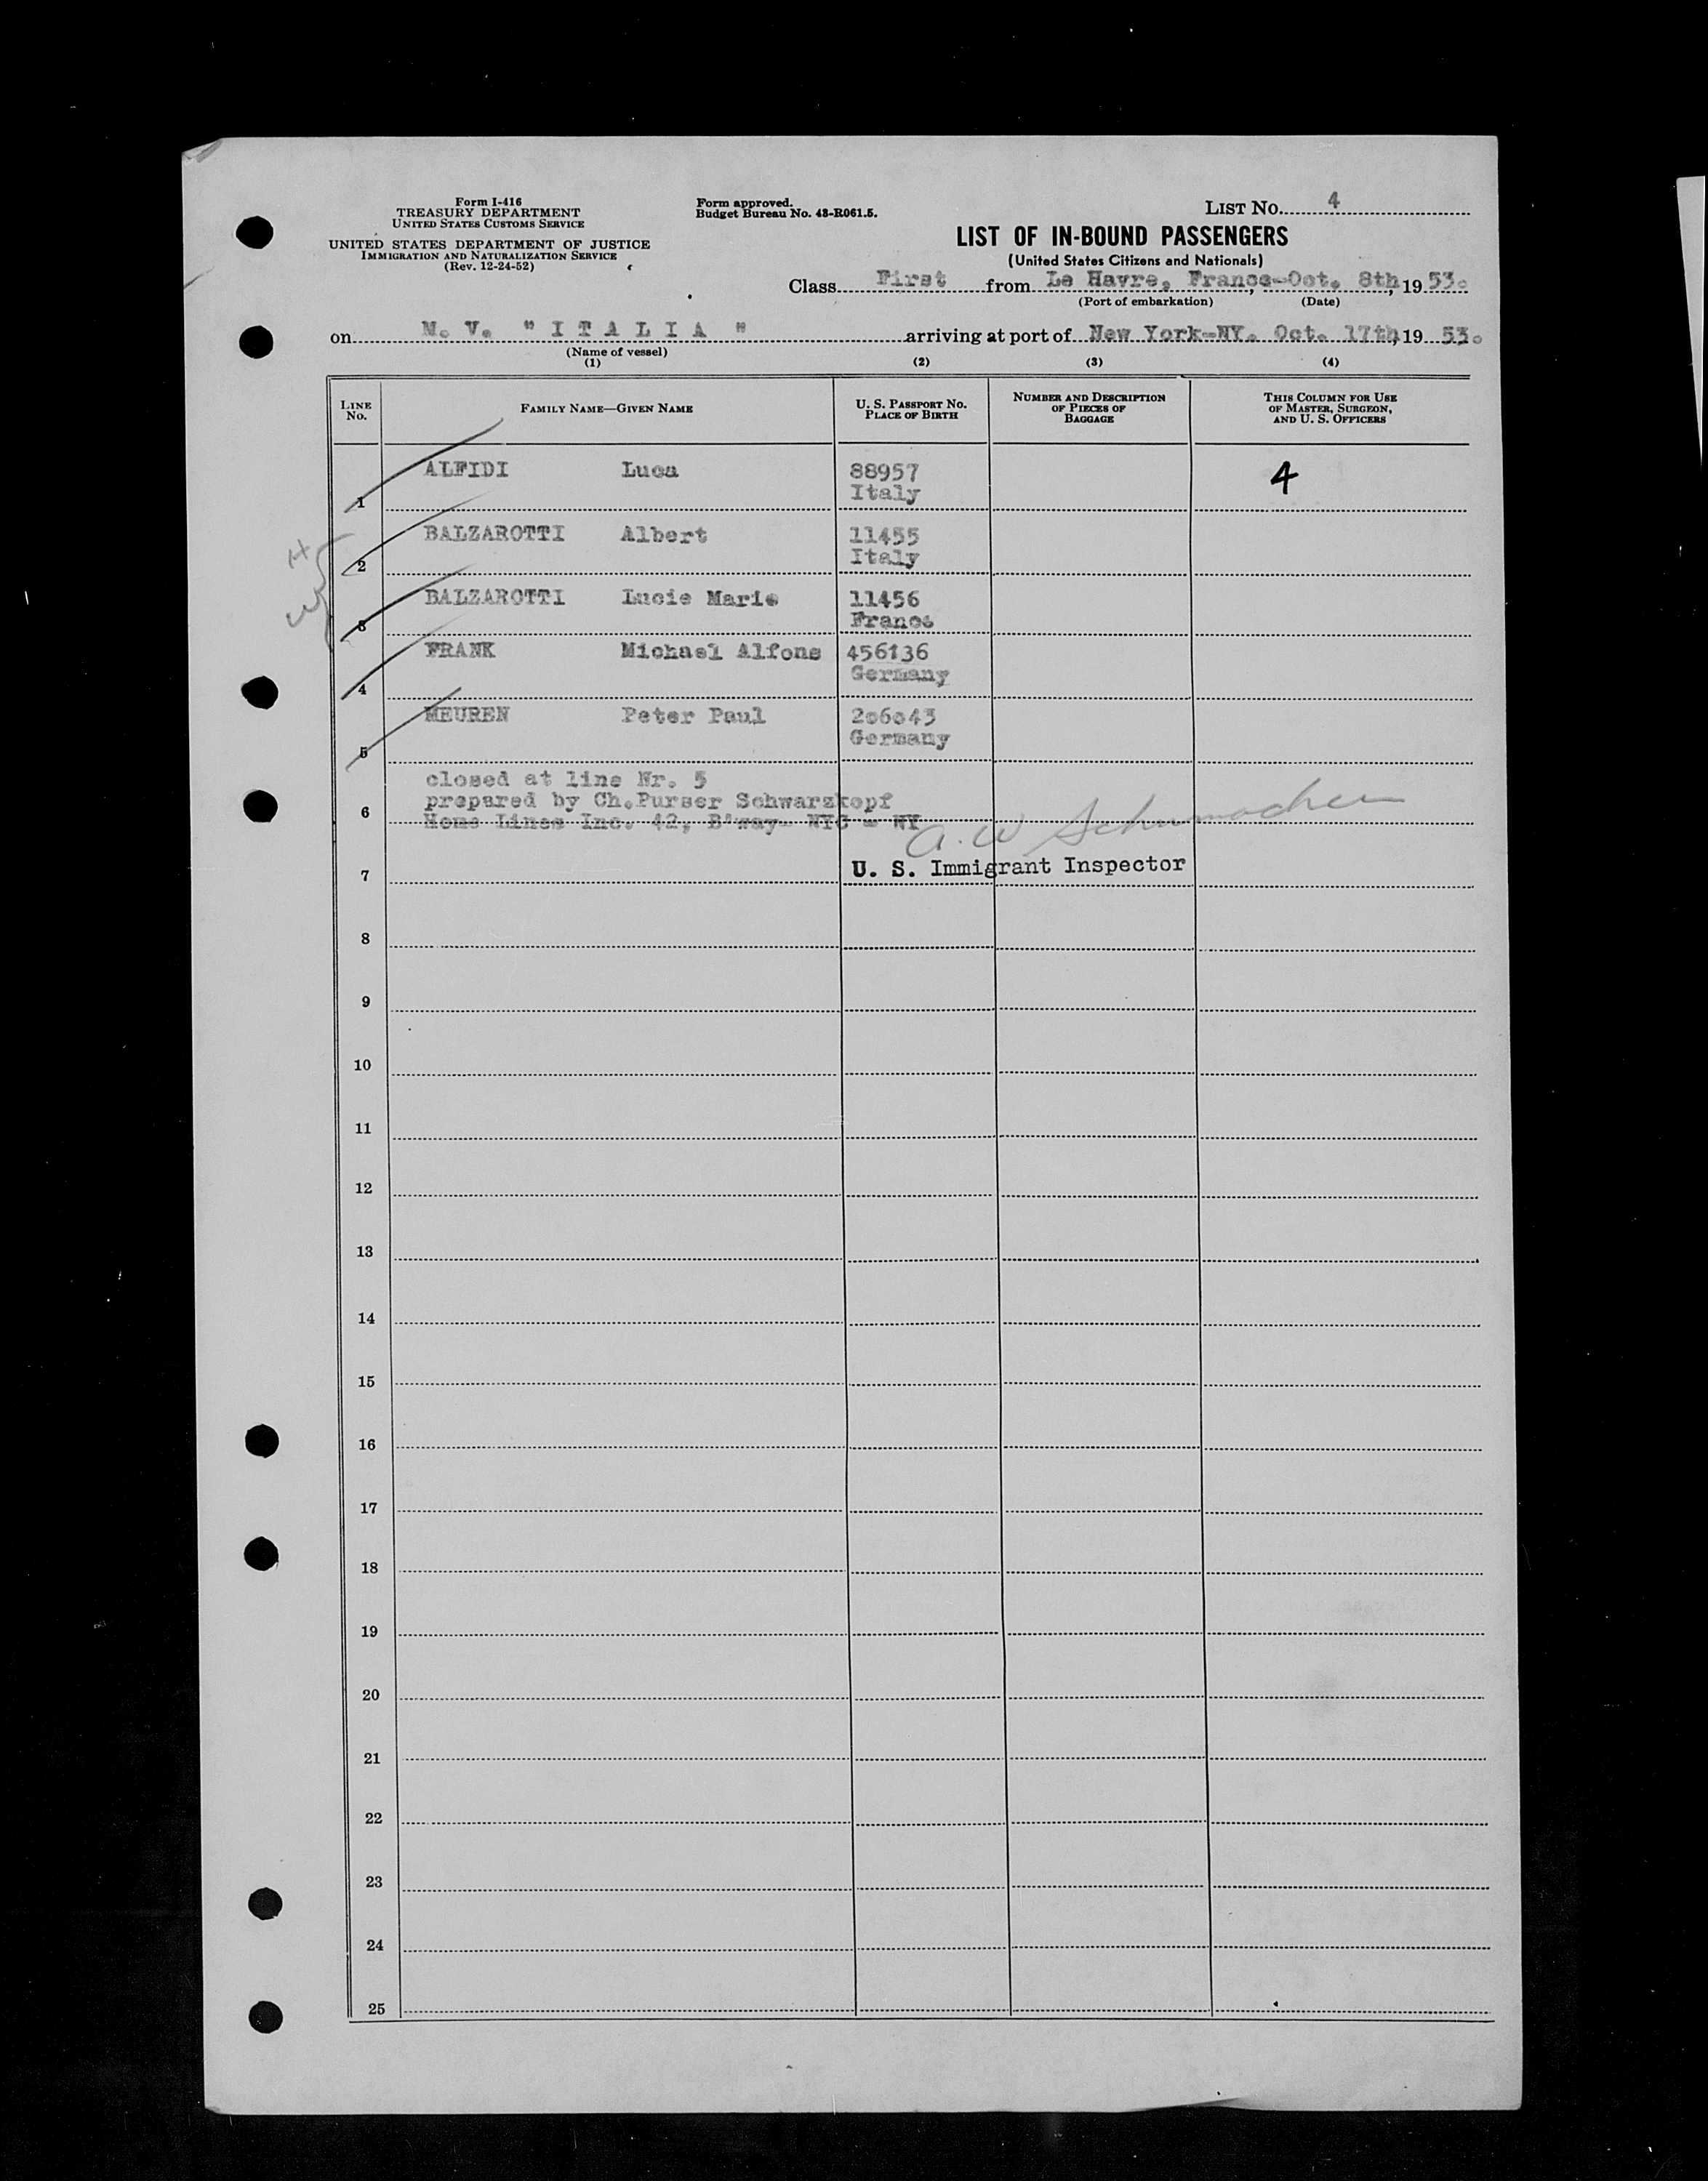 Form I-416
TREASURY DEPARTMENT
UNITED STATES CUSTOMS SERVICE
UNITED STATES DEPARTMENT OF JUSTICE
IMMIGRATION AND NATURALIZATION SERVICE
(Rev. 12-24-52)
Form approved.
Budget Bureau No. 43-R061.5.
LIST No. 4
LIST OF IN-BOUND PASSENGERS
(United States Citizens and Nationals)
Class First from Le Havre, France-Oct. 8th, 1953.
(Port of embarkation) (Date)
on M. V. " I T A L I A " arriving at port of New York-NY. Oct. 17th, 1953.
(Name of vessel)
(1) (2) (3) (4)
LINE No. FAMILY NAME—GIVEN NAME U. S. PASSPORT No. PLACE OF BIRTH NUMBER AND DESCRIPTION OF PIECES OF BAGGAGE THIS COLUMN FOR USE OF MASTER, SURGEON, AND U. S. OFFICERS
ALFIDI Luca 88957 4
1 Italy
BALZAROTTI Albert 11455
2 Italy
BALZAROTTI Lucie Marie 11456
3 France
FRANK Michael Alfons 456136
4 Germany
MEUREN Peter Paul 2o6o43
5 Germany
closed at line Nr. 5
6 prepared by Ch.Purser Schwarzkopf
Home Lines Inc. 42, B'way- NYC - NY
A. W Schumacher
7 U. S. Immigrant Inspector
8
9
10
11
12
13
14
15
16
17
18
19
20
21
22
23
24
25